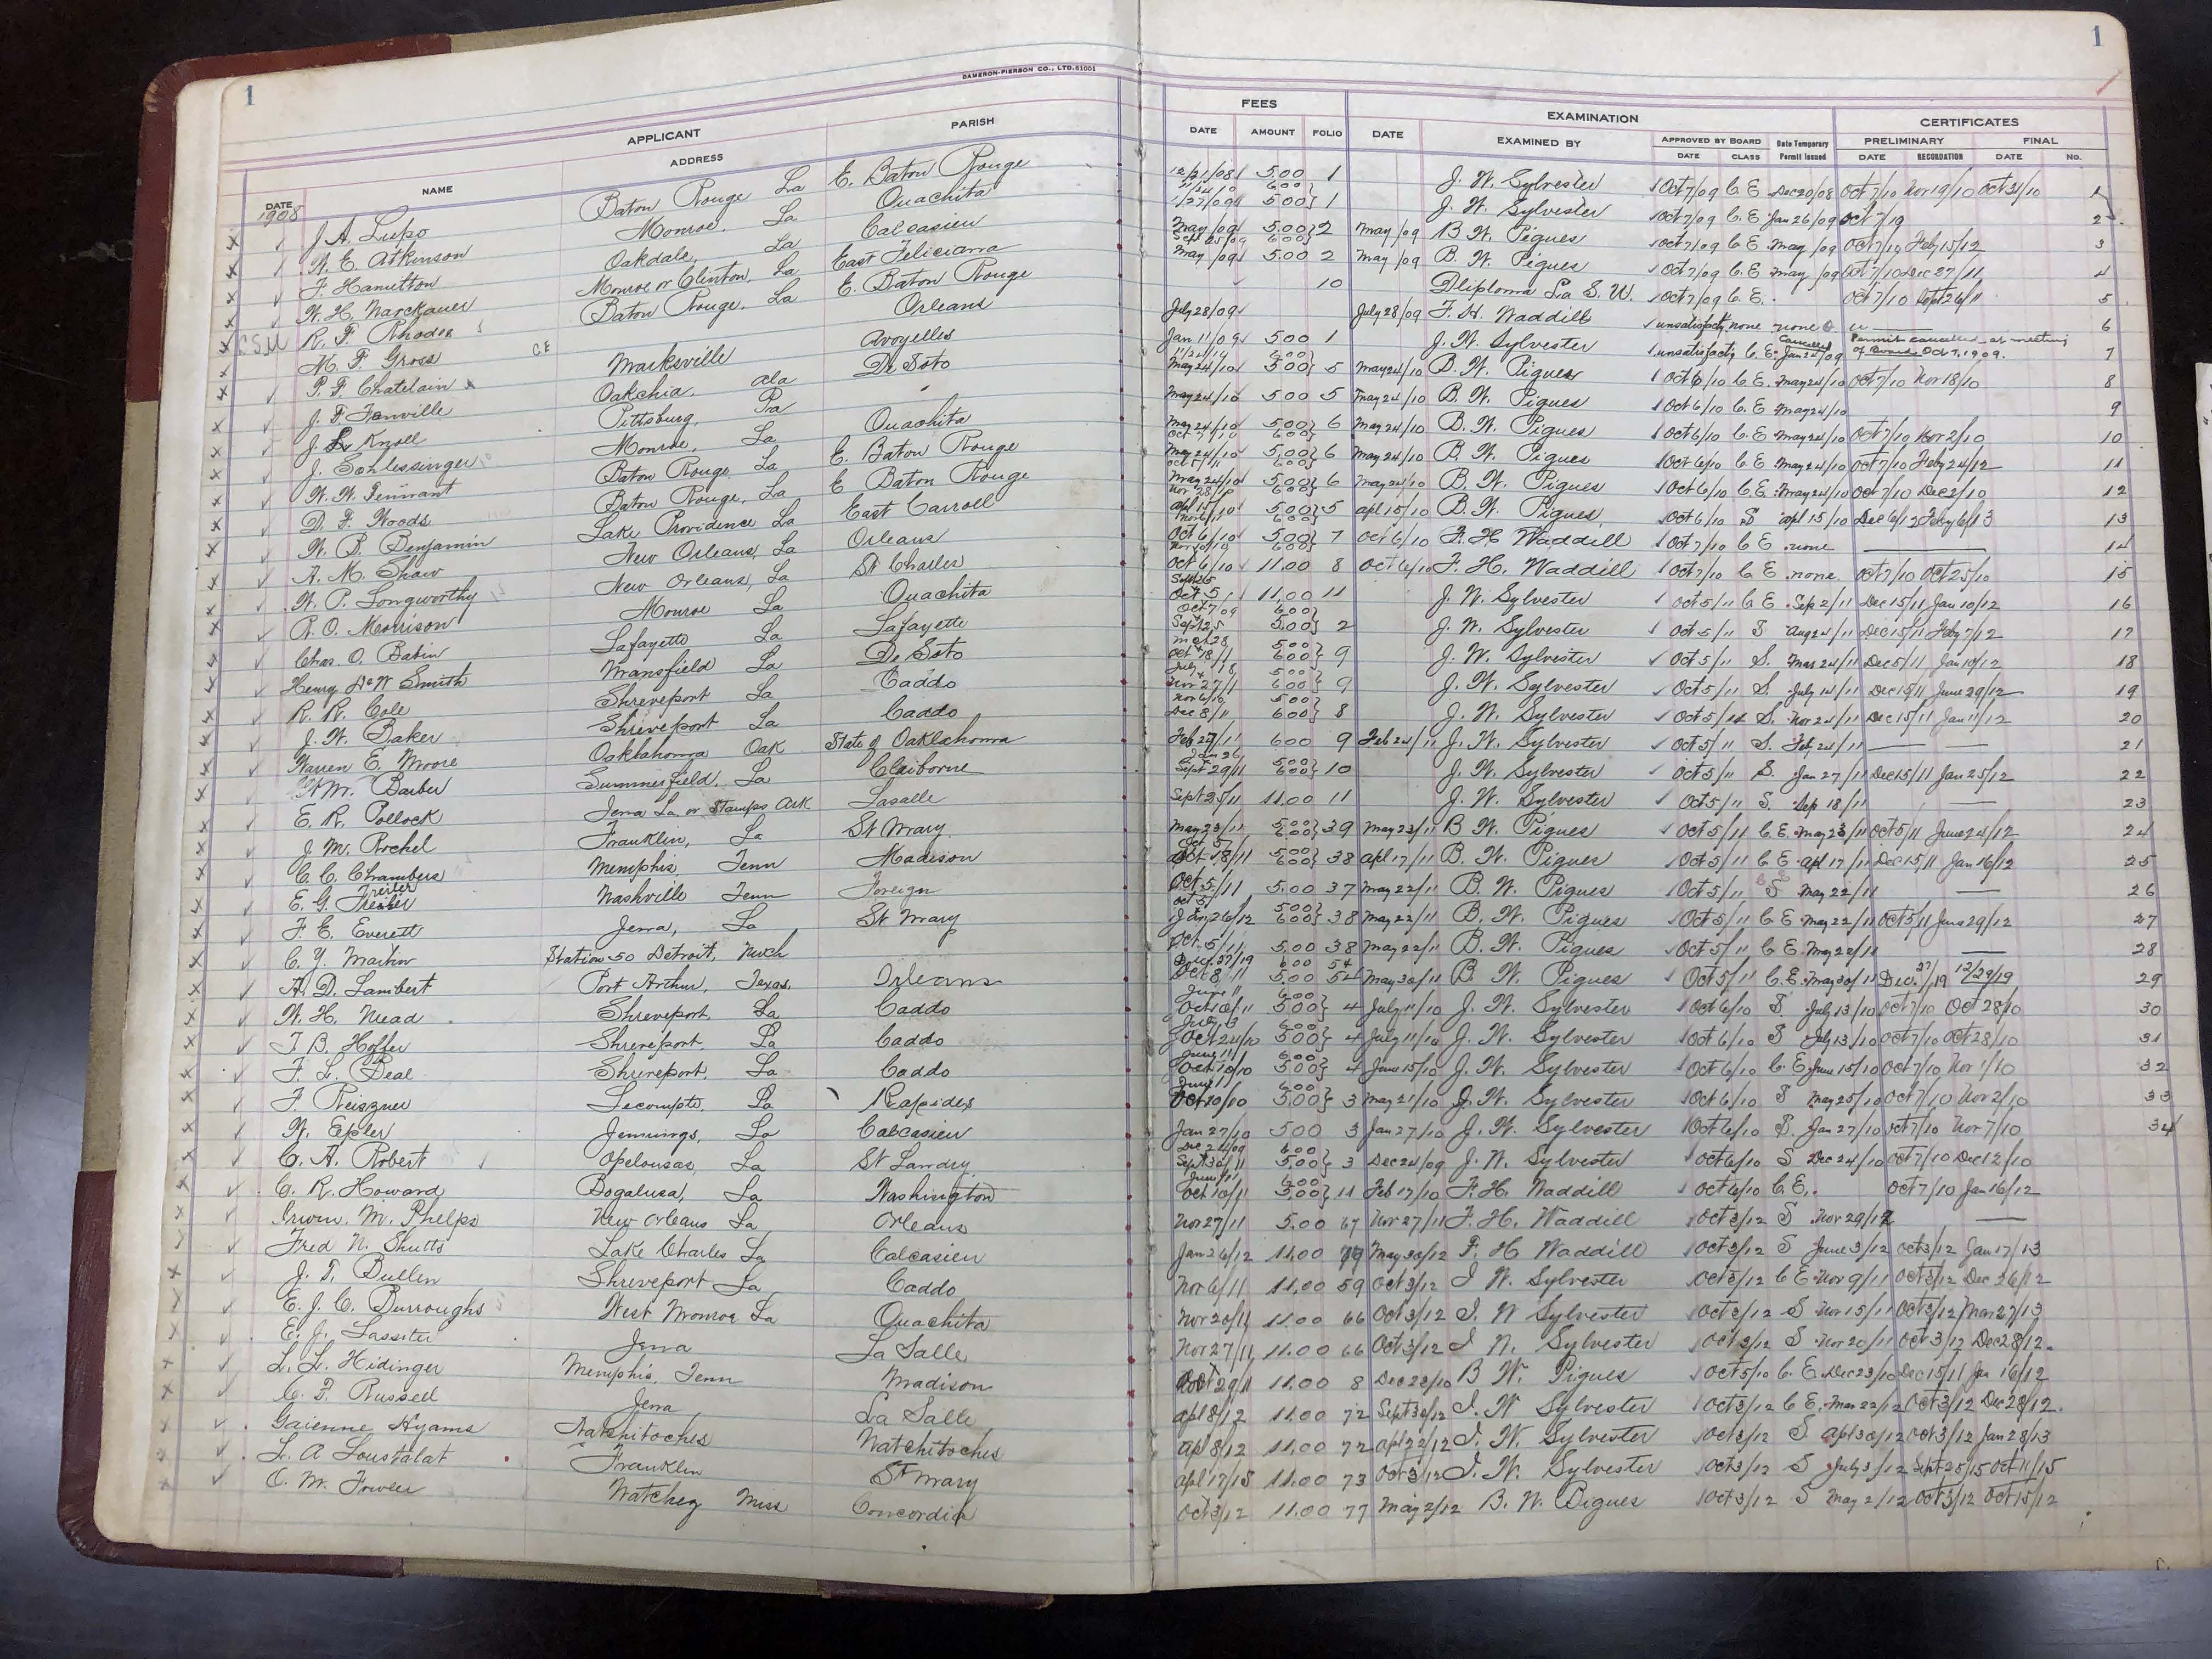 1
1
DAMERON-PIERSON CO., LTD. 51001
APPLICANT
FEES EXAMINATION CERTIFICATES
DATE NAME ADDRESS PARISH DATE AMOUNT FOLIO DATE EXAMINED BY APPROVED BY BOARD Date Temporary Permit Issued PRELIMINARY FINAL
DATE CLASS DATE RECORDATION DATE NO.
1908
J. A. Lupo Baton Rouge La E. Baton Rouge 12/21/08 5.00 1 J. W. Sylvester Oct 7/09 C. E Dec 20/08 Oct 7/10 Nov 19/10 Oct 31/10 1
W. E. Atkinson Monroe, La Ouachita 1/27/09 5.00 1 J. W. Sylvester Oct 7/09 C. E Jan 26/09 Oct 7/10 2
F. Hamilton Oakdale, La Calcasieu May /09 5.00 2 May /09 B. W. Pigues Oct 7/09 C E May /09 Oct 7/10 Feby 15/12 3
W. H. Marckauer Monroe or Clinton, La East Feliciana May /09 5.00 2 May /09 B. W. Pigues Oct 7/09 C. E May /09 Oct 7/10 Dec 27/11 4
R. F. Rhodes Baton Rouge, La E. Baton Rouge 10 Diploma La S. U. Oct 7/09 C. E. Oct 7/10 Sept 26/11 5
M. F. Gross C E Orleans July 28/09 July 28/09 F. H. Waddill none none 6
P. F. Chatelain Marksville Avoyelles Jan 11/09 5.00 1 J. W. Sylvester C. E. Jan 24/09 Cancelled Permit cancelled at meeting of Board Oct 7, 1909. 7
J. F. Fonville Oakchia, Ala De Soto May 24/10 5.00 5 May 24/10 B. W. Pigues Oct 6/10 C. E. May 24/10 Oct 7/10 Nov 18/10 8
J. Knoll Pittsburg, Pa May 24/10 5.00 5 May 24/10 B. W. Pigues Oct 6/10 C. E May 24/10 9
J. Schlessinger Monroe, La Ouachita May 24/10 5.00 6.00 6 May 24/10 B. W. Pigues Oct 6/10 C E May 24/10 Oct 7/10 Nov 2/10 10
W. W. Tennant Baton Rouge La E. Baton Rouge May 24/10 5.00 6.00 6 May 24/10 B. W. Pigues Oct 6/10 C E May 24/10 Oct 7/10 Feby 24/12 11
D. F. Woods Baton Rouge, La E Baton Rouge May 24/10 5.00 6.00 6 May 24/10 B. W. Pigues Oct 6/10 C E May 24/10 Oct 7/10 Dec 2/10 12
W. B. Benjamin Lake Providence La East Carroll Apl 15/10 5.00 6.00 5 Apl 15/10 B. W. Pigues Oct 6/10 S Apl 15/10 Dec 6/12 Feby 6/13 13
A. M. Shaw New Orleans, La Orleans Oct 6/10 5.00 6.00 7 Oct 6/10 F. H Waddill Oct 7/10 C E none 14
W. P. Longworthy New Orleans, La St Charles Oct 6/10 11.00 8 Oct 6/10 F. H. Waddill Oct 7/10 C E none Oct 7/10 Oct 25/10 15
R. O. Morrison Monroe La Ouachita Oct 5 11.00 11 J. W. Sylvester Oct 5/11 C E Sep 2/11 Dec 15/11 Jan 10/12 16
Chas. O. Babin Lafayette La Lafayette Sept 25 5.00 2 J. W. Sylvester Oct 5/11 S Aug 24/11 Dec 15/11 Feby 7/12 17
Henry DeW Smith Mansfield La De Soto Oct 18/11 6.00 9 J. W. Sylvester Oct 5/11 S. Mar 24/11 Dec 5/11 Jan 10/12 18
R. R. Cole Shreveport La Caddo Nov 27/11 6.00 9 J. W. Sylvester Oct 5/11 S. July 14/11 Dec 15/11 June 29/12 19
J. W. Baker Shreveport La Caddo Dec 8/11 6.00 8 J. W. Sylvester Oct 5/11 S. Nov 24/11 Dec 15/11 Jan 11/12 20
Warren E. Moore Oaklahoma Oak State of Oaklahoma Feb 27/11 6.00 9 Feb 24/11 J. W. Sylvester Oct 5/11 S. Feb 24/11 21
Wm. Barber Summerfield, La Claiborne Sept 29/11 5.00 6.00 10 J. W. Sylvester Oct 5/11 S. Jan 27/11 Dec 15/11 Jan 25/12 22
E. R. Pollock Jena La. or Stamps Ark Lasalle Sept 25/11 11.00 11 J. W. Sylvester Oct 5/11 S. Sep 18/11 23
J. M. Rochel Franklin, La St Mary May 23/11 5.00 6.00 39 May 23/11 B W. Pigues Oct 5/11 C. E. May 23/11 Oct 5/11 June 24/12 24
C. C. Chambers Memphis, Tenn Madison Oct 18/11 5.00 6.00 38 Apl 17/11 B. W. Pigues Oct 5/11 C E Apl 17/11 Dec 15/11 Jan 16/12 25
E. G. Freiler Nashville Tenn Foreign Oct 5/11 5.00 37 May 22/11 B. W. Pigues Oct 5/11 S May 22/11 26
F. E. Everett Jena, La St Mary Jan 26/12 5.00 6.00 38 May 22/11 B. W. Pigues Oct 5/11 C E May 22/11 Oct 5/11 June 29/12 27
C. Y. Martin Station 50 Detroit, Mich Oct 5/11 5.00 38 May 22/11 B. W. Pigues Oct 5/11 C E May 22/11 28
A. D. Lambert Port Arthur, Texas. Orleans Oct 8/11 5.00 54 May 30/11 B. W. Pigues Oct 5/11 C. E. May 30/11 Dec. 27/19 12/29/19 29
W. H. Mead Shreveport, La Caddo Oct 10/11 5.00 4 July 11/10 J. W. Sylvester Oct 6/10 S. July 13/10 Oct 7/10 Oct 28/10 30
T. B. Hoffer Shreveport. La Caddo Oct 24/10 5.00 4 July 11/10 J. W. Sylvester Oct 6/10 S July 13/10 Oct 7/10 Oct 28/10 31
F. L. Deal Shreveport, La Caddo Oct 10/10 5.00 4 June 15/10 J. W. Sylvester Oct 6/10 C. E June 15/10 Oct 7/10 Nov 1/10 32
F. Reiszner Lecompte, La Rapides Oct 20/10 5.00 3 May 21/10 J. W. Sylvester Oct 6/10 S May 25/10 Oct 7/10 Nov 2/10 33
W. Epler Jennings, La Calcasieu Jan 27/10 5.00 3 Jan 27/10 J. W. Sylvester Oct 6/10 S. Jan 27/10 Oct 7/10 Nov 7/10 34
C. A. Robert Opelousas, La St Landry Sept 30/11 5.00 3 Dec 24/09 J. W. Sylvester Oct 6/10 S Dec 24/10 Oct 7/10 Dec 12/10
C. R. Howard Bogalusa, La Washington Oct 10/11 5.00 11 Feb 17/10 F. H. Waddill Oct 6/10 C. E. Oct 7/10 Jan 16/12
Irwin. M. Phelps New Orleans La Orleans Nov 27/11 5.00 67 Nov 27/11 F. H. Waddill Oct 3/12 S Nov 29/12
Fred N. Shutts Lake Charles La Calcasieu Jan 26/12 11.00 79 May 30/12 F. H Waddill Oct 3/12 S June 3/12 Oct 3/12 Jan 17/13
J. T. Bullen Shreveport La Caddo Nov 6/11 11.00 59 Oct 3/12 J W. Sylvester Oct 3/12 C E Nov 9/11 Oct 3/12 Dec 26/12
E. J. C. Burroughs West Monroe La Ouachita Nov 20/11 11.00 66 Oct 3/12 J. W Sylvester Oct 3/12 S Nov 15/11 Oct 3/12 Mar 27/13
E. J. Lassiter Jena La Salle Nov 27/11 11.00 66 Oct 3/12 J W. Sylvester Oct 3/12 S Nov 20/11 Oct 3/12 Dec 28/12.
L. L. Hidinger Memphis, Tenn Madison Oct 29/11 11.00 8 Dec 23/10 B W. Pigues Oct 5/10 C. E. Dec 23/10 Dec 15/11 Jan 16/12
C. F. Russell Jena La Salle Apl 8/12 11.00 72 Sept 30/12 J. W Sylvester Oct 3/12 C E. Mar 22/12 Oct 3/12 Dec 28/12.
Gaienne Hyams Natchitoches Natchitoches Apl 8/12 11.00 72 Apl 22/12 J. W. Sylvester Oct 3/12 S. Apl 30/12 Oct 3/12 Jan 28/13
L. A Loustalat Franklin St Mary Apl 17/15 11.00 73 Oct 3/12 J. W. Sylvester Oct 3/12 S July 3/12 Sept 25/15 Oct 11/15
C. M. Fowler Natchez Miss Concordia Oct 3/12 11.00 77 May 2/12 B. W. Pigues Oct 3/12 S May 2/12 Oct 3/12 Oct 15/12